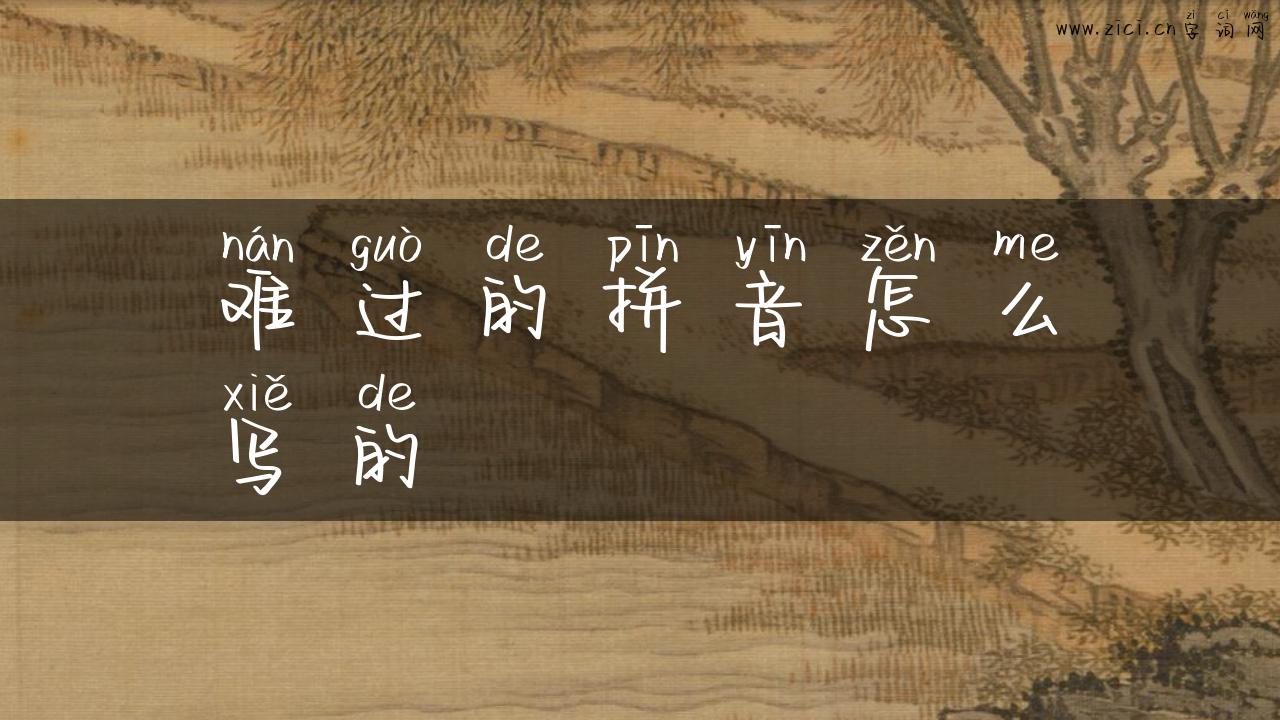 zì cí wǎng
www.zici.cn 字 词 网
nán guò de pīn yīn zěn me
难 过 的 拼 音 怎 么
xiě de
写 的